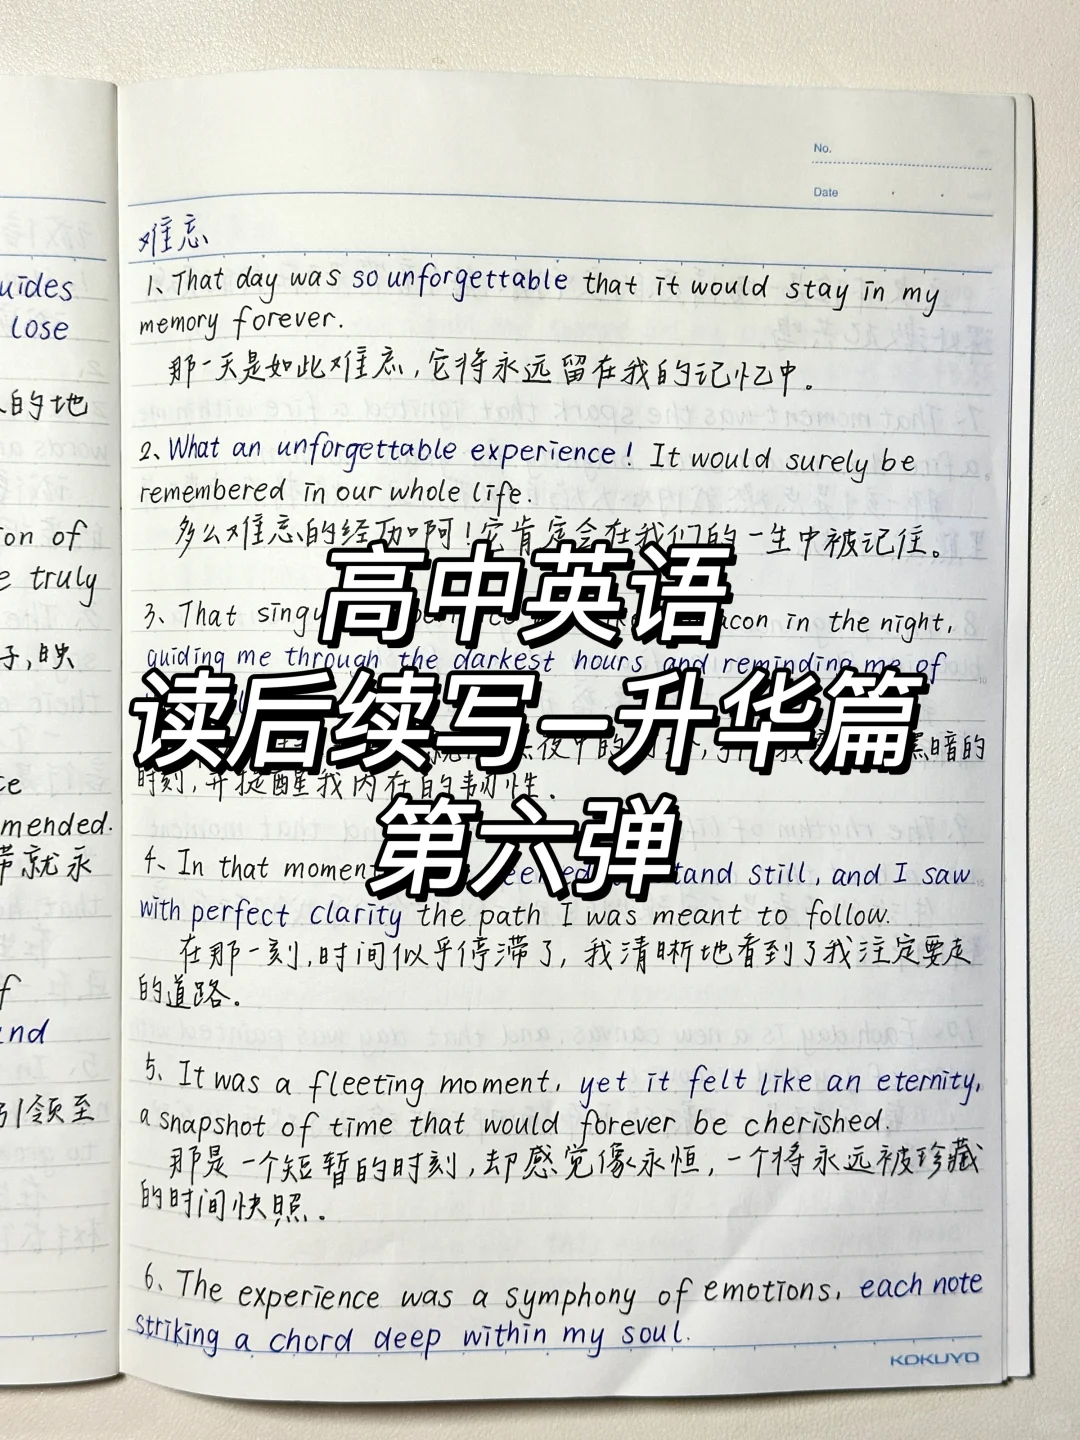 No.
Date
难忘
1、That day was so unforgettable that it would stay in my
memory forever.
那一天是如此难忘,它将永远留在我的记忆中。
2、What an unforgettable experience! It would surely be
remembered in our whole life.
多么难忘的经历啊!它肯定会在我们的一生中被记住。
高中英语
读后续写-升华篇
第六弹
3、That in the night,
guiding me through the darkest hours and reminding me of
黑暗的
时刻,并提醒我内在的韧性.
4、In that moment still, and I saw
with perfect clarity the path I was meant to follow.
在那一刻,时间似乎停滞了,我清晰地看到了我注定要走
的道路。
5、It was a fleeting moment, yet it felt like an eternity,
a snapshot of time that would forever be cherished.
那是一个短暂的时刻,却感觉像永恒,一个将永远被珍藏
的时间快照.
6、The experience was a symphony of emotions, each note
striking a chord deep within my soul.
KOKUYO
uides
lose
的地
on of
truly
映
mended.
带就永
and
引领至